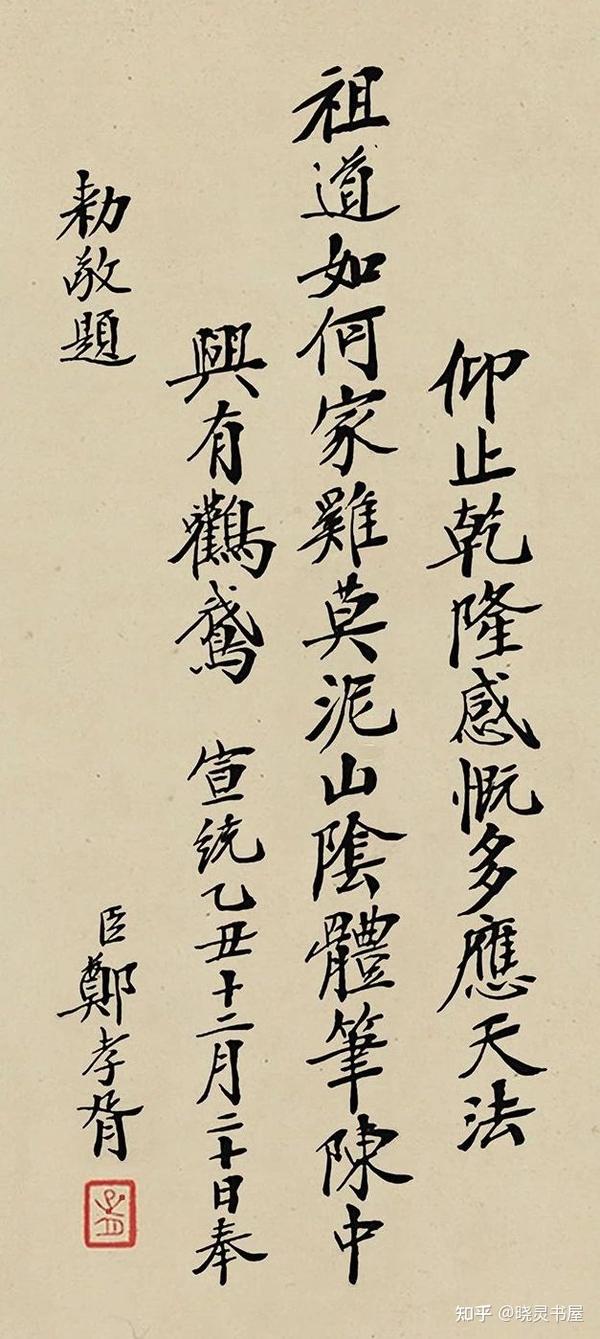 仰止乾隆感慨多應天法
祖道如何家雞莫泥山陰體筆陳中
興有鸛鵞 宣統乙丑十二月二十日奉
勑敬題
臣鄭孝胥
知乎 @晓灵书屋